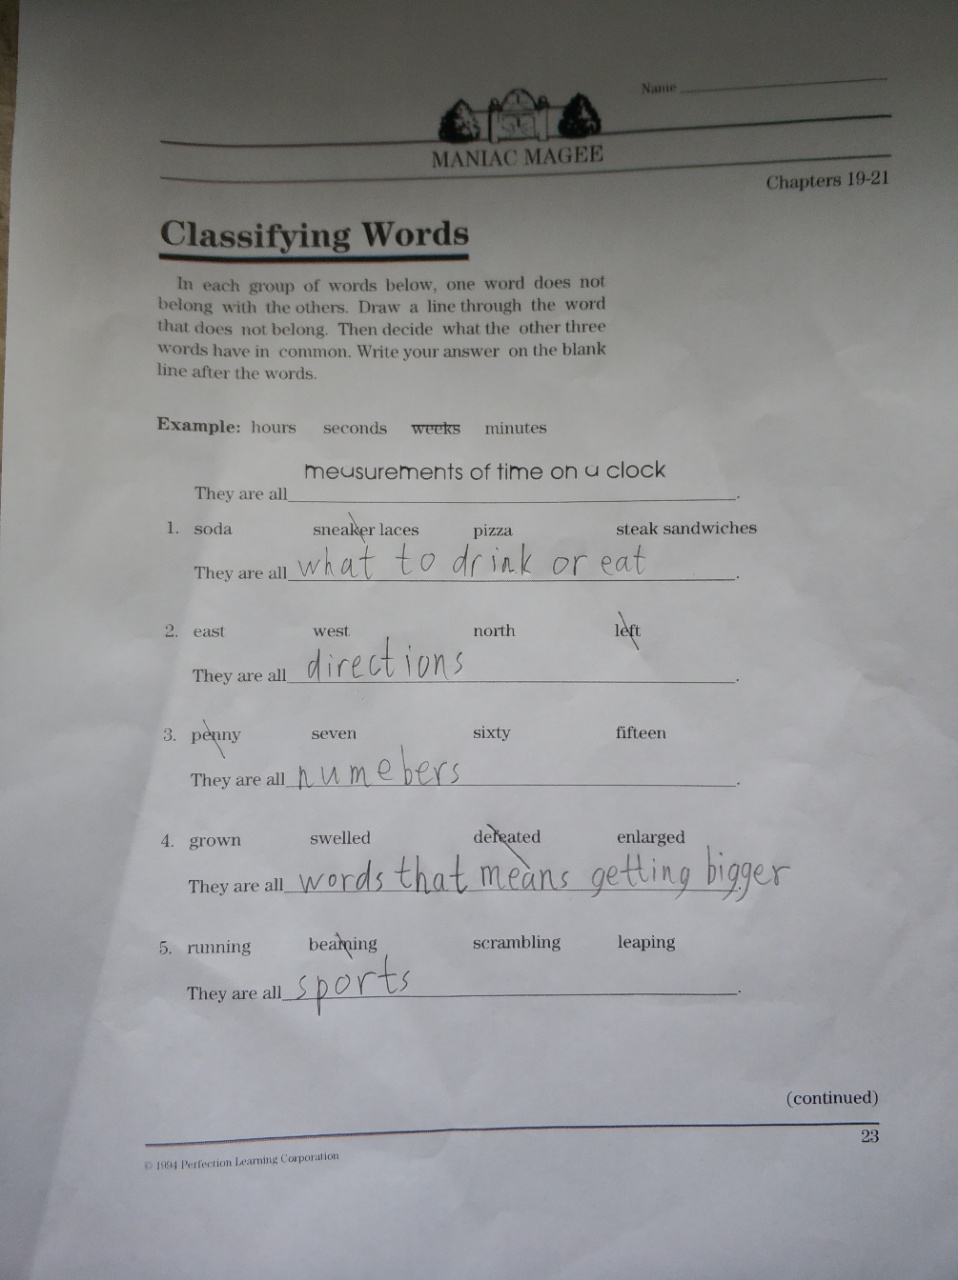 Name
MANIAC MAGEE
Chapters 19-21
Classifying Words
In each group of words below, one word does not
belong with the others. Draw a line through the word
that does not belong. Then decide what the other three
words have in common. Write your answer on the blank
line after the words.
Example: hours seconds weeks minutes
measurements of time on a clock
They are all.
1. soda sneaker laces pizza steak sandwiches
They are all what to drink or eat.
2. east west north left
They are all directions.
3. penny seven sixty fifteen
They are all numebers.
4. grown swelled defeated enlarged
They are all words that means getting bigger
5. running beaming scrambling leaping
They are all sports.
(continued)
23
© 1994 Perfection Learning Corporation